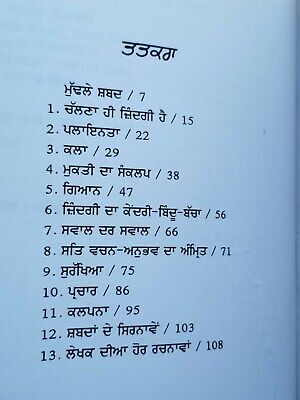 ਤਤਕਰਾ
ਮੁੱਢਲੇ ਸ਼ਬਦ / 7
1. ਚੱਲਣਾ ਹੀ ਜ਼ਿੰਦਗੀ ਹੈ / 15
2. ਪਲਾਇਨਤਾ / 22
3. ਕਲਾ / 29
4. ਮੁਕਤੀ ਦਾ ਸੰਕਲਪ / 38
5. ਗਿਆਨ / 47
6. ਜ਼ਿੰਦਗੀ ਦਾ ਕੇਂਦਰੀ-ਬਿੰਦੂ-ਬੱਚਾ / 56
7. ਸਵਾਲ ਦਰ ਸਵਾਲ / 66
8. ਸਤਿ ਵਚਨ-ਅਨੁਭਵ ਦਾ ਅੰਮ੍ਰਿਤ / 71
9. ਸੁਰੱਖਿਆ / 75
10. ਪ੍ਰਚਾਰ / 86
11. ਕਲਪਨਾ / 95
12. ਸ਼ਬਦਾਂ ਦੇ ਸਿਰਨਾਵੇਂ / 103
13. ਲੇਖਕ ਦੀਆ ਹੋਰ ਰਚਨਾਵਾਂ / 108